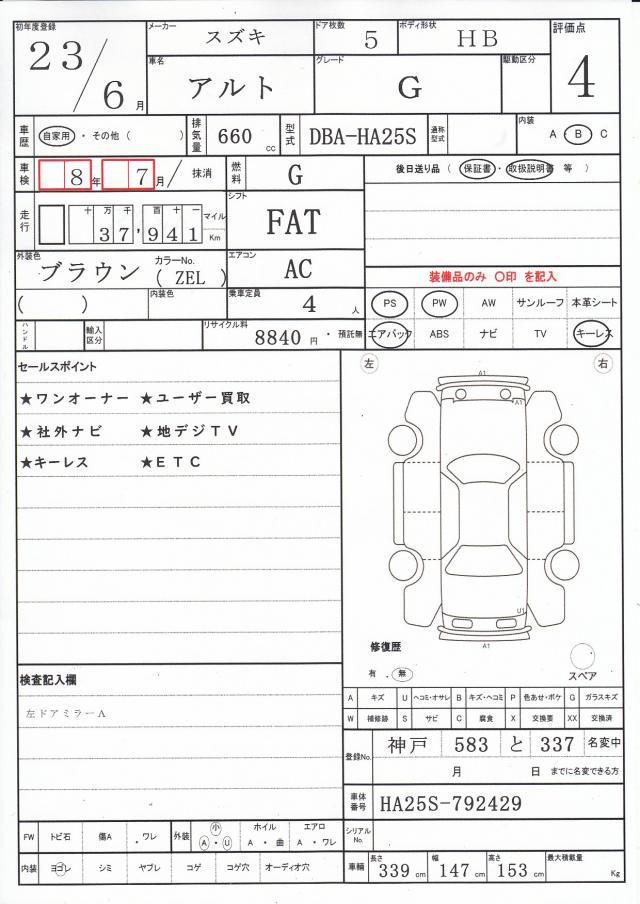 初年度登録 23/6月 メーカー スズキ ドア枚数 5 ボディ形状 HB 評価点 4
車名 アルト グレード G 駆動区分
車歴 自家用・その他( ) 排気量 660 cc 型式 DBA-HA25S 通称型式 内装 A・B C
車検 8年 7月/ 抹消 燃料 G 後日送り品 (保証書・取扱説明書 等 )
走行 十万千百十一 37,941 マイル Km シフト FAT
外装色 ブラウン カラーNo. (ZEL) エアコン AC 装備品のみ 〇印 を記入
( ) 内装色 乗車定員 4 人 PS PW AW サンルーフ 本革シート
ハンドル 輸入区分 リサイクル料 8840 円 ・ 預託無 エアバック ABS ナビ TV キーレス
セールスポイント 左 右
★ワンオーナー ★ユーザー買取 A1
★社外ナビ ★地デジTV A1
★キーレス ★ETC
U1
A1
修復歴
有 ・ 無 スペア
検査記入欄
左ドアミラーA
A キズ U ヘコミ・オサレ B キズ・ヘコミ P 色あせ・ボケ G ガラスキズ
W 補修跡 S サビ C 腐食 X 交換要 XX 交換済
登録No. 神戸 583 と 337 名変中
月 日 までに名変できる方
車体番号 HA25S-792429
FW トビ石 傷A ・ワレ 外装 小 A・U ホイル A・曲 エアロ A・ワレ シリアルNo.
内装 ヨゴレ シミ ヤブレ コゲ コゲ穴 オーディオ穴 車輛 長さ 339 cm 幅 147 cm 高さ 153 cm 最大積載量 Kg